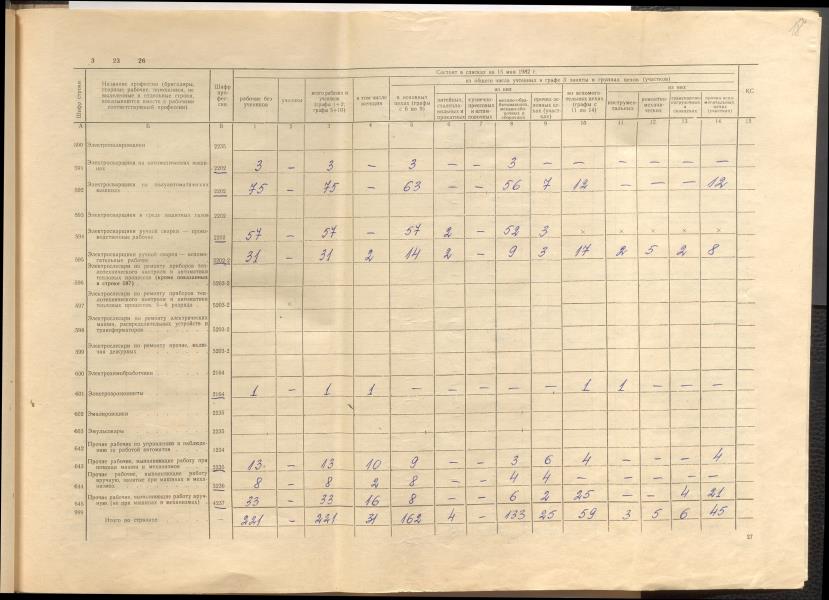 3 23 26
Состоит в списках на 15 мая 1982 г.
Шифр строки
Название профессии (бригадиры, старшие рабочие, помощники, не выделенные в отдельные строки, показываются вместе с рабочими соответствующей профессии)
Шифр профессии
рабочие без учеников
ученики
всего рабочих и учеников (графы 1+2; графы 5+10)
в том числе женщин
в основных цехах (графы с 6 по 9)
из общего числа учтенных в графе 3 заняты в группах цехов (участков)
из них
прочих основных цехах (участках)
во вспомогательных цехах (графы с 11 по 14)
из них
инструментальных
ремонтно-механических
прочих вспомогательных цехах (участках)
КС
А Б В 1 2 3 4 5 6 7 8 9 10 11 12 13 14 15
590 Электрополировщики 2235
591 Электросварщики на автоматических машинах 2202 3 – 3 – 3 – – 3 – – – – – –
592 Электросварщики на полуавтоматических машинах 2202 75 – 75 – 63 – – 56 7 12 – – – 12
593 Электросварщики в среде защитных газов 2202
594 Электросварщики ручной сварки — производственные рабочие 2202 57 – 57 – 57 2 – 52 3 × × × × ×
595 Электросварщики ручной сварки — вспомогательные рабочие 5202-2 31 – 31 2 14 2 – 9 3 17 2 5 2 8
596 Электрослесари по ремонту приборов теплотехнического контроля и автоматики тепловых процессов (кроме показанных в строке 597) 5203-2
597 Электрослесари по ремонту приборов теплотехнического контроля и автоматики тепловых процессов, 5—6 разряда 5203-2
598 Электрослесари по ремонту электрических машин, распределительных устройств и трансформаторов 5203-2
599 Электрослесари по ремонту прочие, включая дежурных 5203-2
600 Электрохимобработчики 2164
601 Электроэрозионисты 2164 1 – 1 1 – – – – – 1 1 – – –
602 Эмалировщики 2235
603 Эмульсовары 2235
642 Прочие рабочие по управлению и наблюдению за работой автоматов 1234
643 Прочие рабочие, выполняющие работу при помощи машин и механизмов 2235 13 – 13 10 9 – – 3 6 4 – – – 4
644 Прочие рабочие, выполняющие работу вручную, занятые при машинах и механизмах 3236 8 – 8 2 8 – – 4 4 – – – – –
645 Прочие рабочие, выполняющие работу вручную (не при машинах и механизмах) 4237 33 – 33 16 8 – – 6 2 25 – – 4 21
999 Итого по странице – 221 – 221 31 162 4 – 133 25 59 3 5 6 45
27